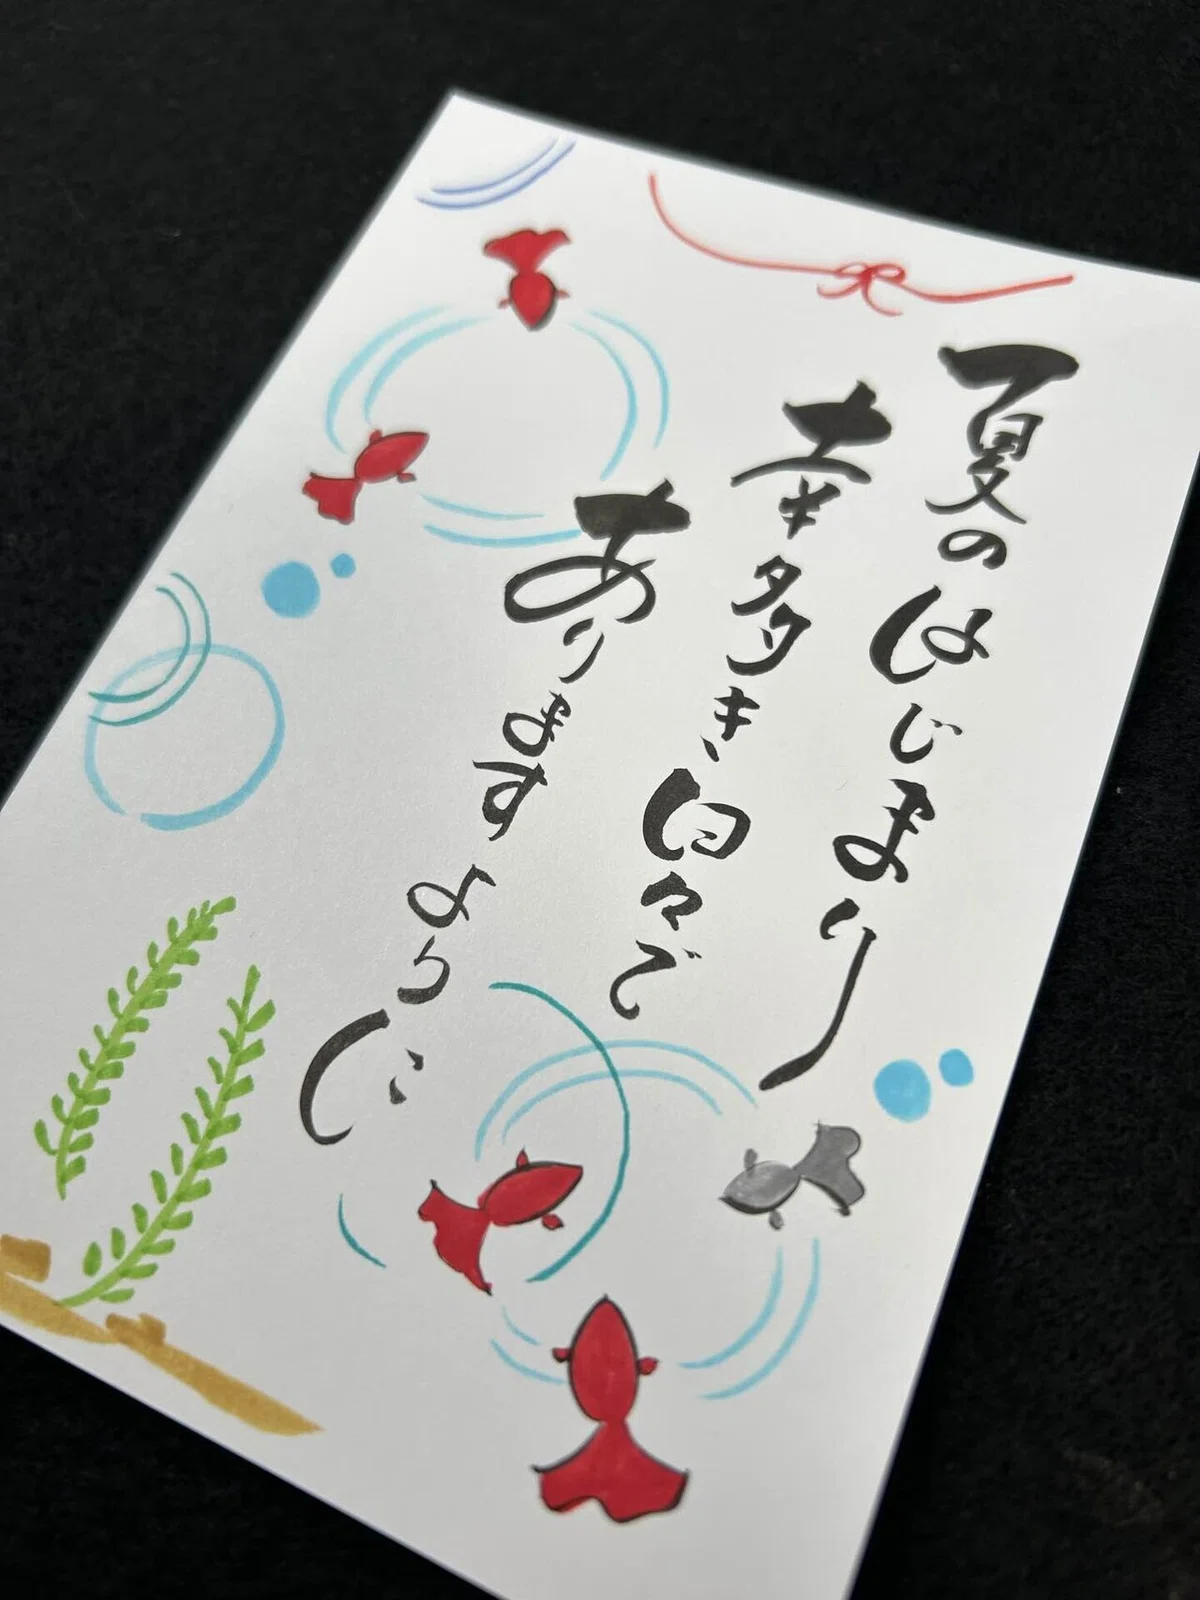 夏のはじまり
幸多き日々で
ありますように